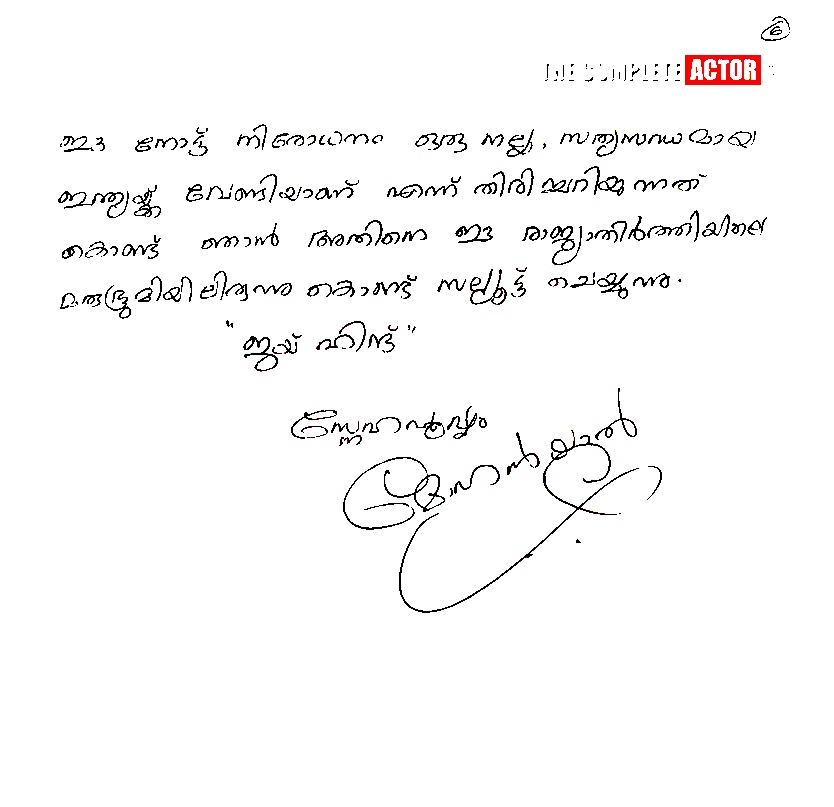 6
THE COMPLETE ACTOR
ഈ നോട്ട് നിരോധനം ഒരു നല്ല, സത്യസന്ധമായ
ഇന്ത്യയ്ക്ക് വേണ്ടിയാണ് എന്ന് തിരിച്ചറിയുന്നത്
കൊണ്ട് ഞാൻ അതിനെ ഈ രാജ്യാതിർത്തിയിലെ
മരുഭൂമിയിലിരുന്നു കൊണ്ട് സല്ല്യൂട്ട് ചെയ്യുന്നു.
"ജയ് ഹിന്ദ്"
സ്നേഹപൂർവ്വം
മോഹൻലാൽ